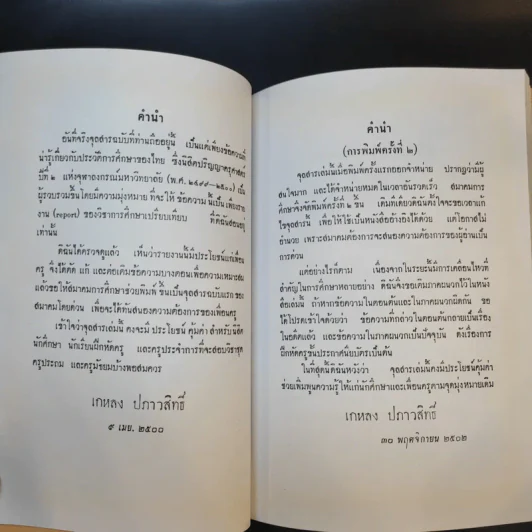 คำนำ
อันที่จริงจุลสารฉบับที่ท่านถืออยู่นี้ เป็นแต่เพียงข้อความที่
น่ารู้เกี่ยวกับประวัติการศึกษาของไทย ซึ่งนิสิตปริญญาครุศาสตร์
ปีที่ ๒ แห่งจุฬาลงกรณ์มหาวิทยาลัย (พ.ศ. ๒๔๙๙—๒๕๐๐) เป็น
ผู้รวบรวมขึ้นโดยมีความมุ่งหมาย ที่จะให้ ข้อความ นี้เป็น เพียงราย
งาน (report) ของวิชาการศึกษาเปรียบเทียบ ที่ดิฉันสอนอยู่
เท่านั้น
ดิฉันได้ตรวจดูแล้ว เห็นว่ารายงานนี้มีประโยชน์แก่เพื่อน
ครู จึงได้คัด แก้ และต่อเติมข้อความบางตอนเพื่อความเหมาะสม
แล้วขอให้สมาคมการศึกษาช่วยพิมพ์ ขึ้นเป็นจุลสารฉบับแรก ของ
สมาคมโดยด่วน เพื่อจะได้ทันสนองความต้องการของเพื่อนครู
เข้าใจว่าจุลสารเล่มนี้ คงจะมี ประโยชน์ คุ้มค่า สำหรับ นิสิต
นักศึกษา นักเรียนฝึกหัดครู และครูประจำการที่จะสอบวิชาชุด
ครูประถม และครูมัธยมบ้างพอสมควร
เกหลง ปภาวสิทธิ์
๙ เมย. ๒๕๐๐
คำนำ
(การพิมพ์ครั้งที่ ๒)
จุลสารเล่มนี้เมื่อพิมพ์ครั้งแรกออกจำหน่าย ปรากฏว่ามีผู้
สนใจมาก และได้จำหน่ายหมดในเวลาอันรวดเร็ว สมาคมการ
ศึกษาจึงจัดพิมพ์ครั้งที่ ๒ ขึ้น เดิมทีเดียวดิฉันตั้งใจจะขอเวลาแก้
ไขจุลสารนี้ เพื่อให้ใช้เป็นหนังสืออ้างอิงได้ด้วย แต่โอกาสไม่
อำนวย เพราะสมาคมต้องการจะสนองความต้องการของผู้อ่านเป็น
การด่วน
แต่อย่างไรก็ตาม เนื่องจากในระยะนี้มีการเคลื่อนไหวที่
สำคัญในการศึกษาหลายอย่าง ดิฉันจึงขอเติมภาคผนวกไว้ในหนัง
สือเล่มนี้ ถ้าหากข้อความในตอนต้นและในภาคผนวกผิดกัน ขอ
ได้โปรดเข้าใจด้วยว่า ข้อความที่กล่าวในตอนต้นกลายเป็นเรื่อง
ในอดีตแล้ว และข้อความในภาคผนวกเป็นปัจจุบัน ดังเรื่องการ
ฝึกหัดครูชั้นประกาศนียบัตรเป็นต้น
ในที่สุดนี้ดิฉันหวังว่า จุลสารเล่มนี้คงมีประโยชน์คุ้มค่า
ช่วยเพิ่มพูนความรู้ให้แก่นักศึกษาและเพื่อนครูตามจุดมุ่งหมายเดิม
เกหลง ปภาวสิทธิ์
๓๐ พฤศจิกายน ๒๕๐๒